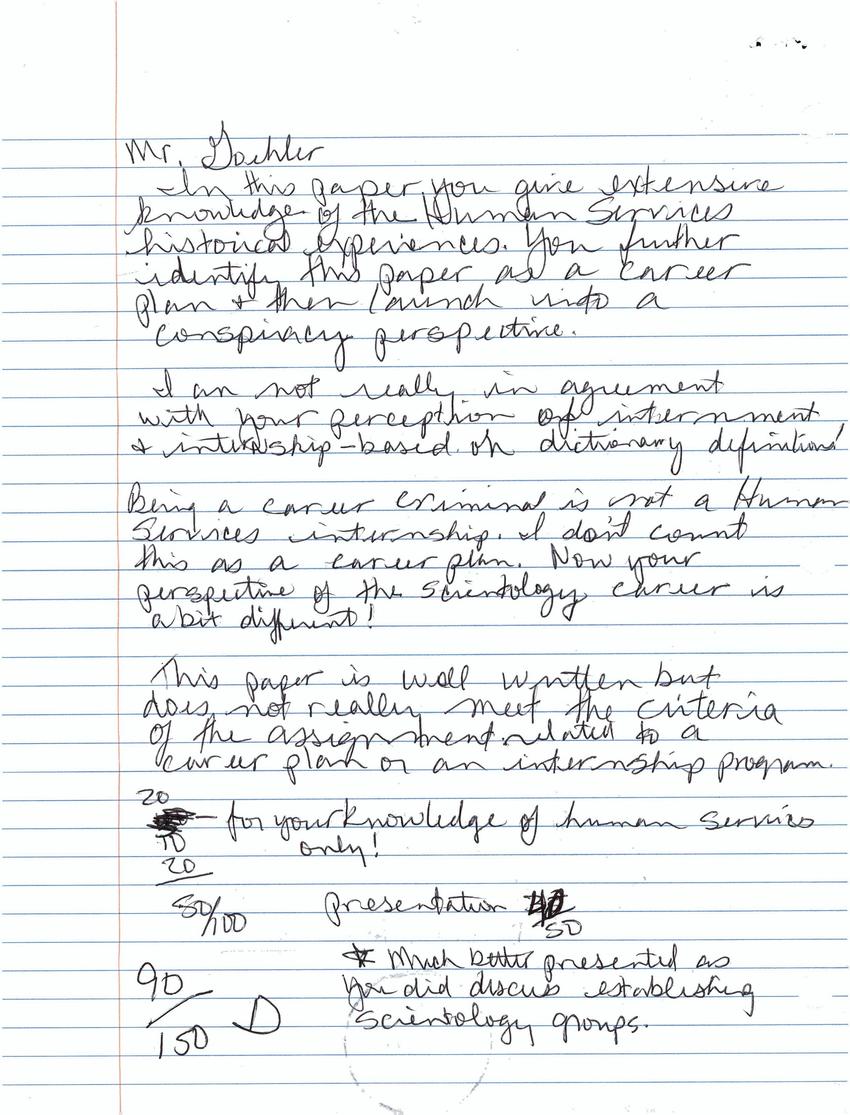 Mr. Goehler
In this paper you give extensive
knowledge of the Human Services
historical experiences. You further
identify this paper as a career
plan & then launch into a
conspiracy perspective.
I am not really in agreement
with your perception of internment
& internship - based on dictionary definitions!
Being a career criminal is not a Human
Services internship. I don't count
this as a career plan. Now your
perspective of the scientology career is
a bit different!
This paper is well written but
does not really meet the criteria
of the assignment related to a
career plan or an internship program.
20
— for your knowledge of human services
10
only!
20
50/100
presentation
50
* Much better presented as
you did discuss establishing
scientology groups.
90
150
D